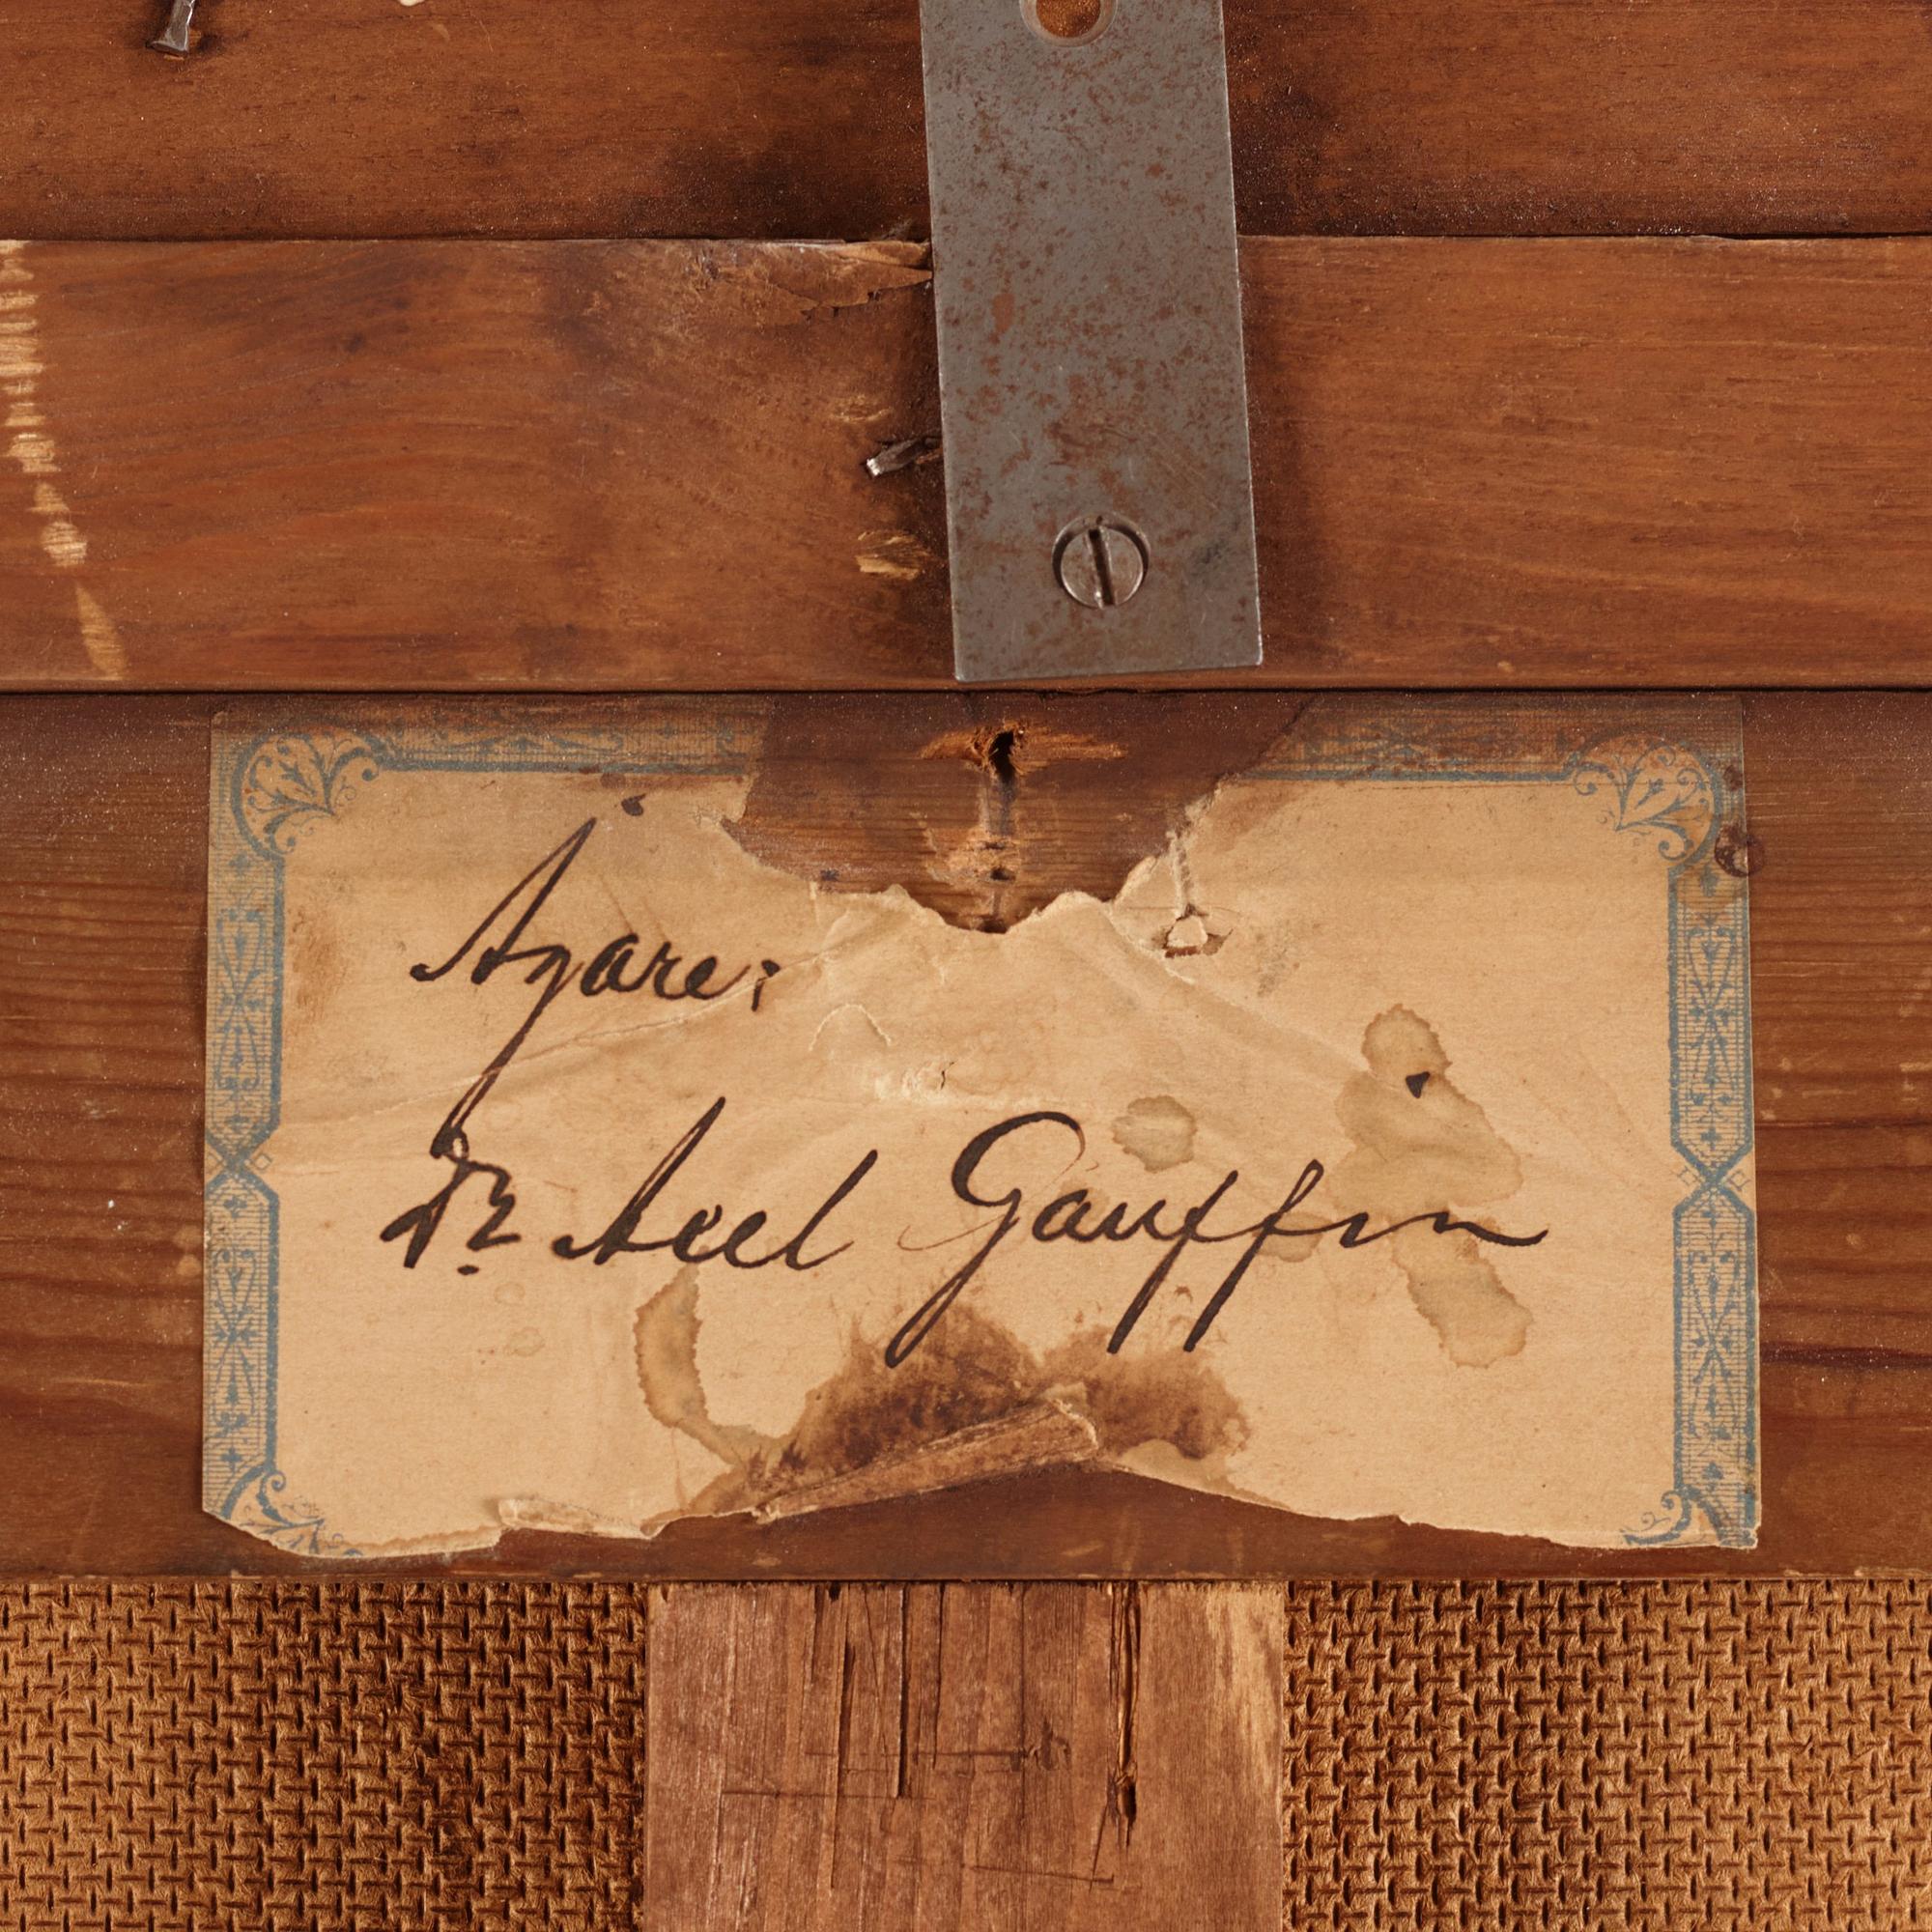 Ägare:
Dr. Axel Gauffin